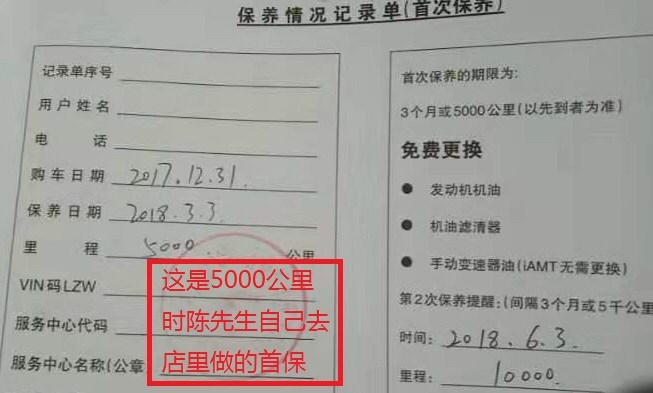 保养情况记录单(首次保养)
记录单序号
用户姓名
电 话
购车日期 2017.12.31.
保养日期 2018.3.3.
里 程 5000 公里
VIN码LZW
服务中心代码
服务中心名称(公章
这是5000公里
时陈先生自己去
店里做的首保
首次保养的期限为:
3个月或5000公里(以先到者为准)
免费更换
● 发动机机油
● 机油滤清器
● 手动变速器油(iAMT无需更换)
第2次保养提醒:(间隔3个月或5千公里
时间: 2018.6.3.
里程: 10000.